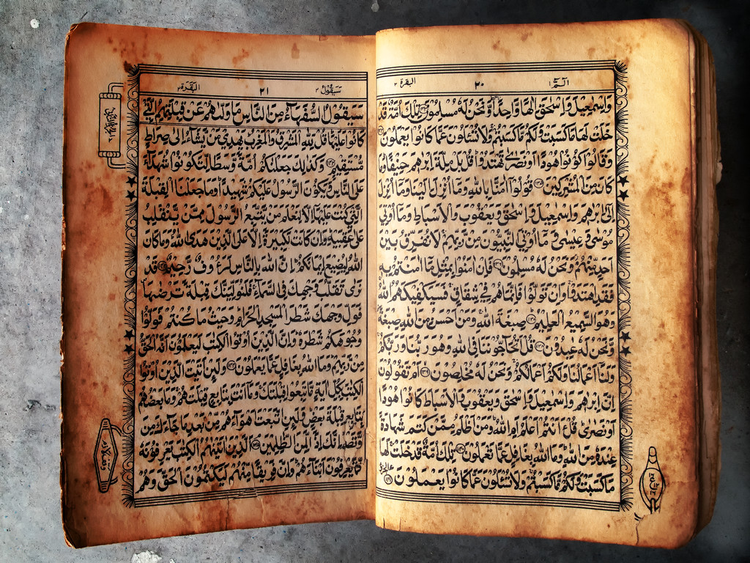 الٓمّٓ ١ ٢٠ البقرة ٢
وَاِسْمٰعِيْلَ وَاِسْحٰقَ اِلٰهًا وَّاحِدًا وَّنَحْنُ لَهٗ مُسْلِمُوْنَ تِلْكَ اُمَّةٌ قَدْ
خَلَتْ لَهَا مَا كَسَبَتْ وَلَكُمْ مَّا كَسَبْتُمْ وَلَا تُسْـَٔلُوْنَ عَمَّا كَانُوْا يَعْمَلُوْنَ
وَقَالُوْا كُوْنُوْا هُوْدًا اَوْ نَصٰرٰى تَهْتَدُوْا قُلْ بَلْ مِلَّةَ اِبْرٰهٖمَ حَنِيْفًا وَمَا
كَانَ مِنَ الْمُشْرِكِيْنَ قُوْلُوْا اٰمَنَّا بِاللهِ وَمَا اُنْزِلَ اِلَيْنَا وَمَا اُنْزِلَ
اِلٰى اِبْرٰهٖمَ وَاِسْمٰعِيْلَ وَاِسْحٰقَ وَيَعْقُوْبَ وَالْاَسْبَاطِ وَمَا اُوْتِيَ
مُوْسٰى وَعِيْسٰى وَمَا اُوْتِيَ النَّبِيُّوْنَ مِنْ رَّبِّهِمْ لَا نُفَرِّقُ بَيْنَ
اَحَدٍ مِّنْهُمْ وَنَحْنُ لَهٗ مُسْلِمُوْنَ فَاِنْ اٰمَنُوْا بِمِثْلِ مَا اٰمَنْتُمْ بِهٖ
فَقَدِ اهْتَدَوْا وَاِنْ تَوَلَّوْا فَاِنَّمَا هُمْ فِيْ شِقَاقٍ فَسَيَكْفِيْكَهُمُ اللهُ
وَهُوَ السَّمِيْعُ الْعَلِيْمُ صِبْغَةَ اللهِ وَمَنْ اَحْسَنُ مِنَ اللهِ صِبْغَةً
وَّنَحْنُ لَهٗ عٰبِدُوْنَ قُلْ اَتُحَاجُّوْنَنَا فِي اللهِ وَهُوَ رَبُّنَا وَرَبُّكُمْ
وَلَنَا اَعْمَالُنَا وَلَكُمْ اَعْمَالُكُمْ وَنَحْنُ لَهٗ مُخْلِصُوْنَ اَمْ تَقُوْلُوْنَ
اِنَّ اِبْرٰهٖمَ وَاِسْمٰعِيْلَ وَاِسْحٰقَ وَيَعْقُوْبَ وَالْاَسْبَاطَ كَانُوْا هُوْدًا
اَوْ نَصٰرٰى قُلْ ءَاَنْتُمْ اَعْلَمُ اَمِ اللهُ وَمَنْ اَظْلَمُ مِمَّنْ كَتَمَ شَهَادَةً
عِنْدَهٗ مِنَ اللهِ وَمَا اللهُ بِغَافِلٍ عَمَّا تَعْمَلُوْنَ تِلْكَ اُمَّةٌ قَدْ خَلَتْ لَهَا
مَا كَسَبَتْ وَلَكُمْ مَّا كَسَبْتُمْ وَلَا تُسْـَٔلُوْنَ عَمَّا كَانُوْا يَعْمَلُوْنَ
سَيَقُوْلُ ٢ ٢١ البقرة ٢
سَيَقُوْلُ السُّفَهَآءُ مِنَ النَّاسِ مَا وَلّٰىهُمْ عَنْ قِبْلَتِهِمُ الَّتِيْ
كَانُوْا عَلَيْهَا قُلْ لِّلّٰهِ الْمَشْرِقُ وَالْمَغْرِبُ يَهْدِيْ مَنْ يَّشَآءُ اِلٰى صِرَاطٍ
مُّسْتَقِيْمٍ وَكَذٰلِكَ جَعَلْنٰكُمْ اُمَّةً وَّسَطًا لِّتَكُوْنُوْا شُهَدَآءَ
عَلَى النَّاسِ وَيَكُوْنَ الرَّسُوْلُ عَلَيْكُمْ شَهِيْدًا وَمَا جَعَلْنَا الْقِبْلَةَ
الَّتِيْ كُنْتَ عَلَيْهَا اِلَّا لِنَعْلَمَ مَنْ يَّتَّبِعُ الرَّسُوْلَ مِمَّنْ يَّنْقَلِبُ
عَلٰى عَقِبَيْهِ وَاِنْ كَانَتْ لَكَبِيْرَةً اِلَّا عَلَى الَّذِيْنَ هَدَى اللهُ وَمَا كَانَ
اللهُ لِيُضِيْعَ اِيْمَانَكُمْ اِنَّ اللهَ بِالنَّاسِ لَرَءُوْفٌ رَّحِيْمٌ قَدْ
نَرٰى تَقَلُّبَ وَجْهِكَ فِي السَّمَآءِ فَلَنُوَلِّيَنَّكَ قِبْلَةً تَرْضٰىهَا
فَوَلِّ وَجْهَكَ شَطْرَ الْمَسْجِدِ الْحَرَامِ وَحَيْثُ مَا كُنْتُمْ فَوَلُّوْا
وُجُوْهَكُمْ شَطْرَهٗ وَاِنَّ الَّذِيْنَ اُوْتُوا الْكِتٰبَ لَيَعْلَمُوْنَ اَنَّهُ الْحَقُّ
مِنْ رَّبِّهِمْ وَمَا اللهُ بِغَافِلٍ عَمَّا يَعْمَلُوْنَ وَلَئِنْ اَتَيْتَ الَّذِيْنَ اُوْتُوا
الْكِتٰبَ بِكُلِّ اٰيَةٍ مَّا تَبِعُوْا قِبْلَتَكَ وَمَا اَنْتَ بِتَابِعٍ قِبْلَتَهُمْ وَمَا بَعْضُهُمْ
بِتَابِعٍ قِبْلَةَ بَعْضٍ وَلَئِنِ اتَّبَعْتَ اَهْوَآءَهُمْ مِّنْ بَعْدِ مَا جَآءَكَ مِنَ
الْعِلْمِ اِنَّكَ اِذًا لَّمِنَ الظّٰلِمِيْنَ اَلَّذِيْنَ اٰتَيْنٰهُمُ الْكِتٰبَ يَعْرِفُوْنَهٗ
كَمَا يَعْرِفُوْنَ اَبْنَآءَهُمْ وَاِنَّ فَرِيْقًا مِّنْهُمْ لَيَكْتُمُوْنَ الْحَقَّ وَهُمْ